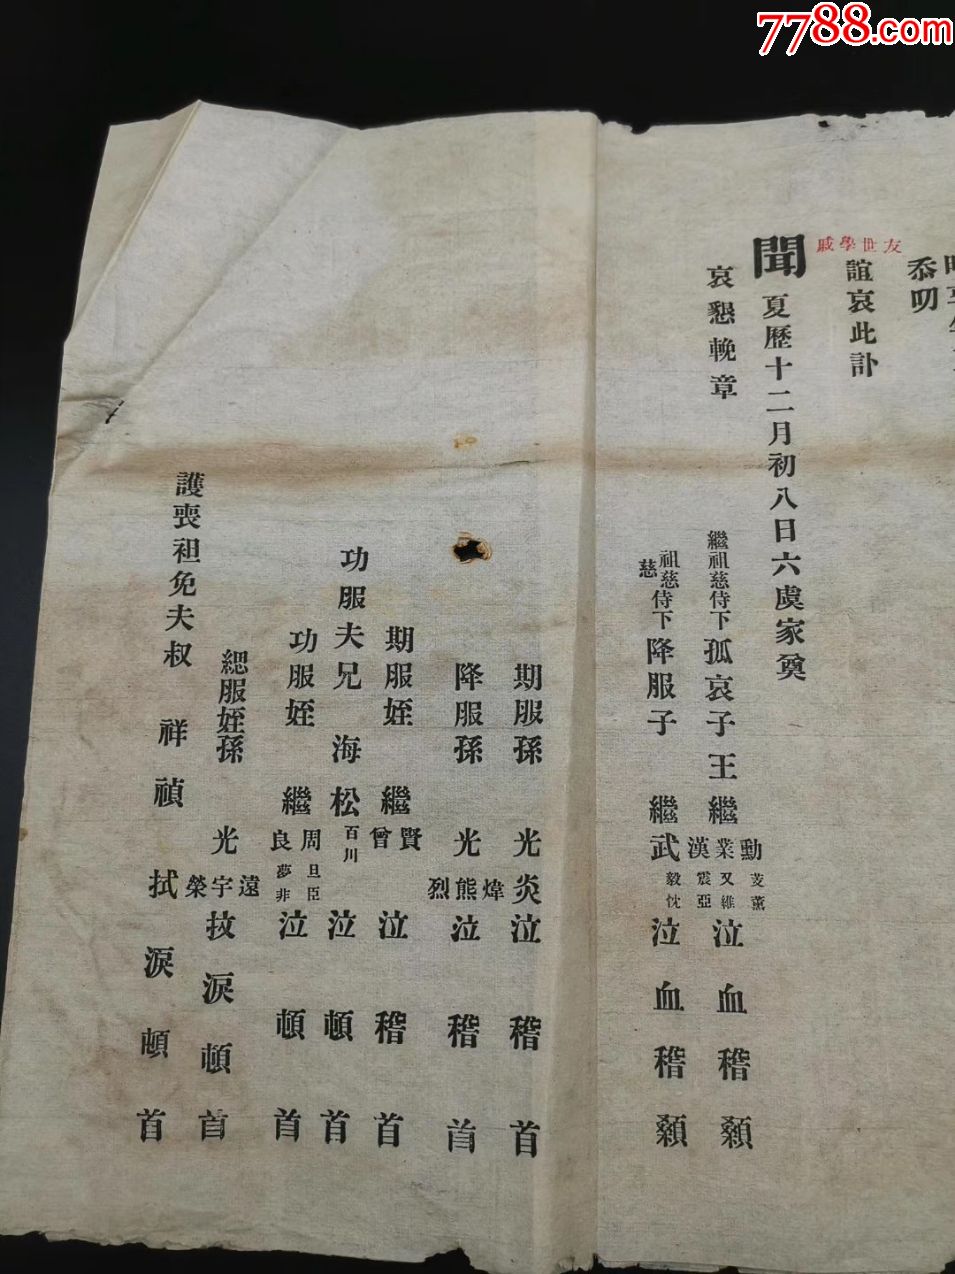 7788.com
忝叨
友世學戚
誼哀此訃
聞
夏歷十二月初八日六虞家奠
哀懇輓章
繼祖慈侍下孤哀子王繼勳業漢泣血稽顙
芰薰
又維
震亞
祖慈慈侍下降服子繼武泣血稽顙
毅忱
期服孫光炎泣稽首
降服孫光煒熊烈泣稽首
期服姪繼賢曾泣稽首
功服夫兄海松泣頓首
百川
功服姪繼周良泣頓首
旦臣
夢非
緦服姪孫光遠宇榮抆淚頓首
護喪袒免夫叔祥禎拭淚頓首